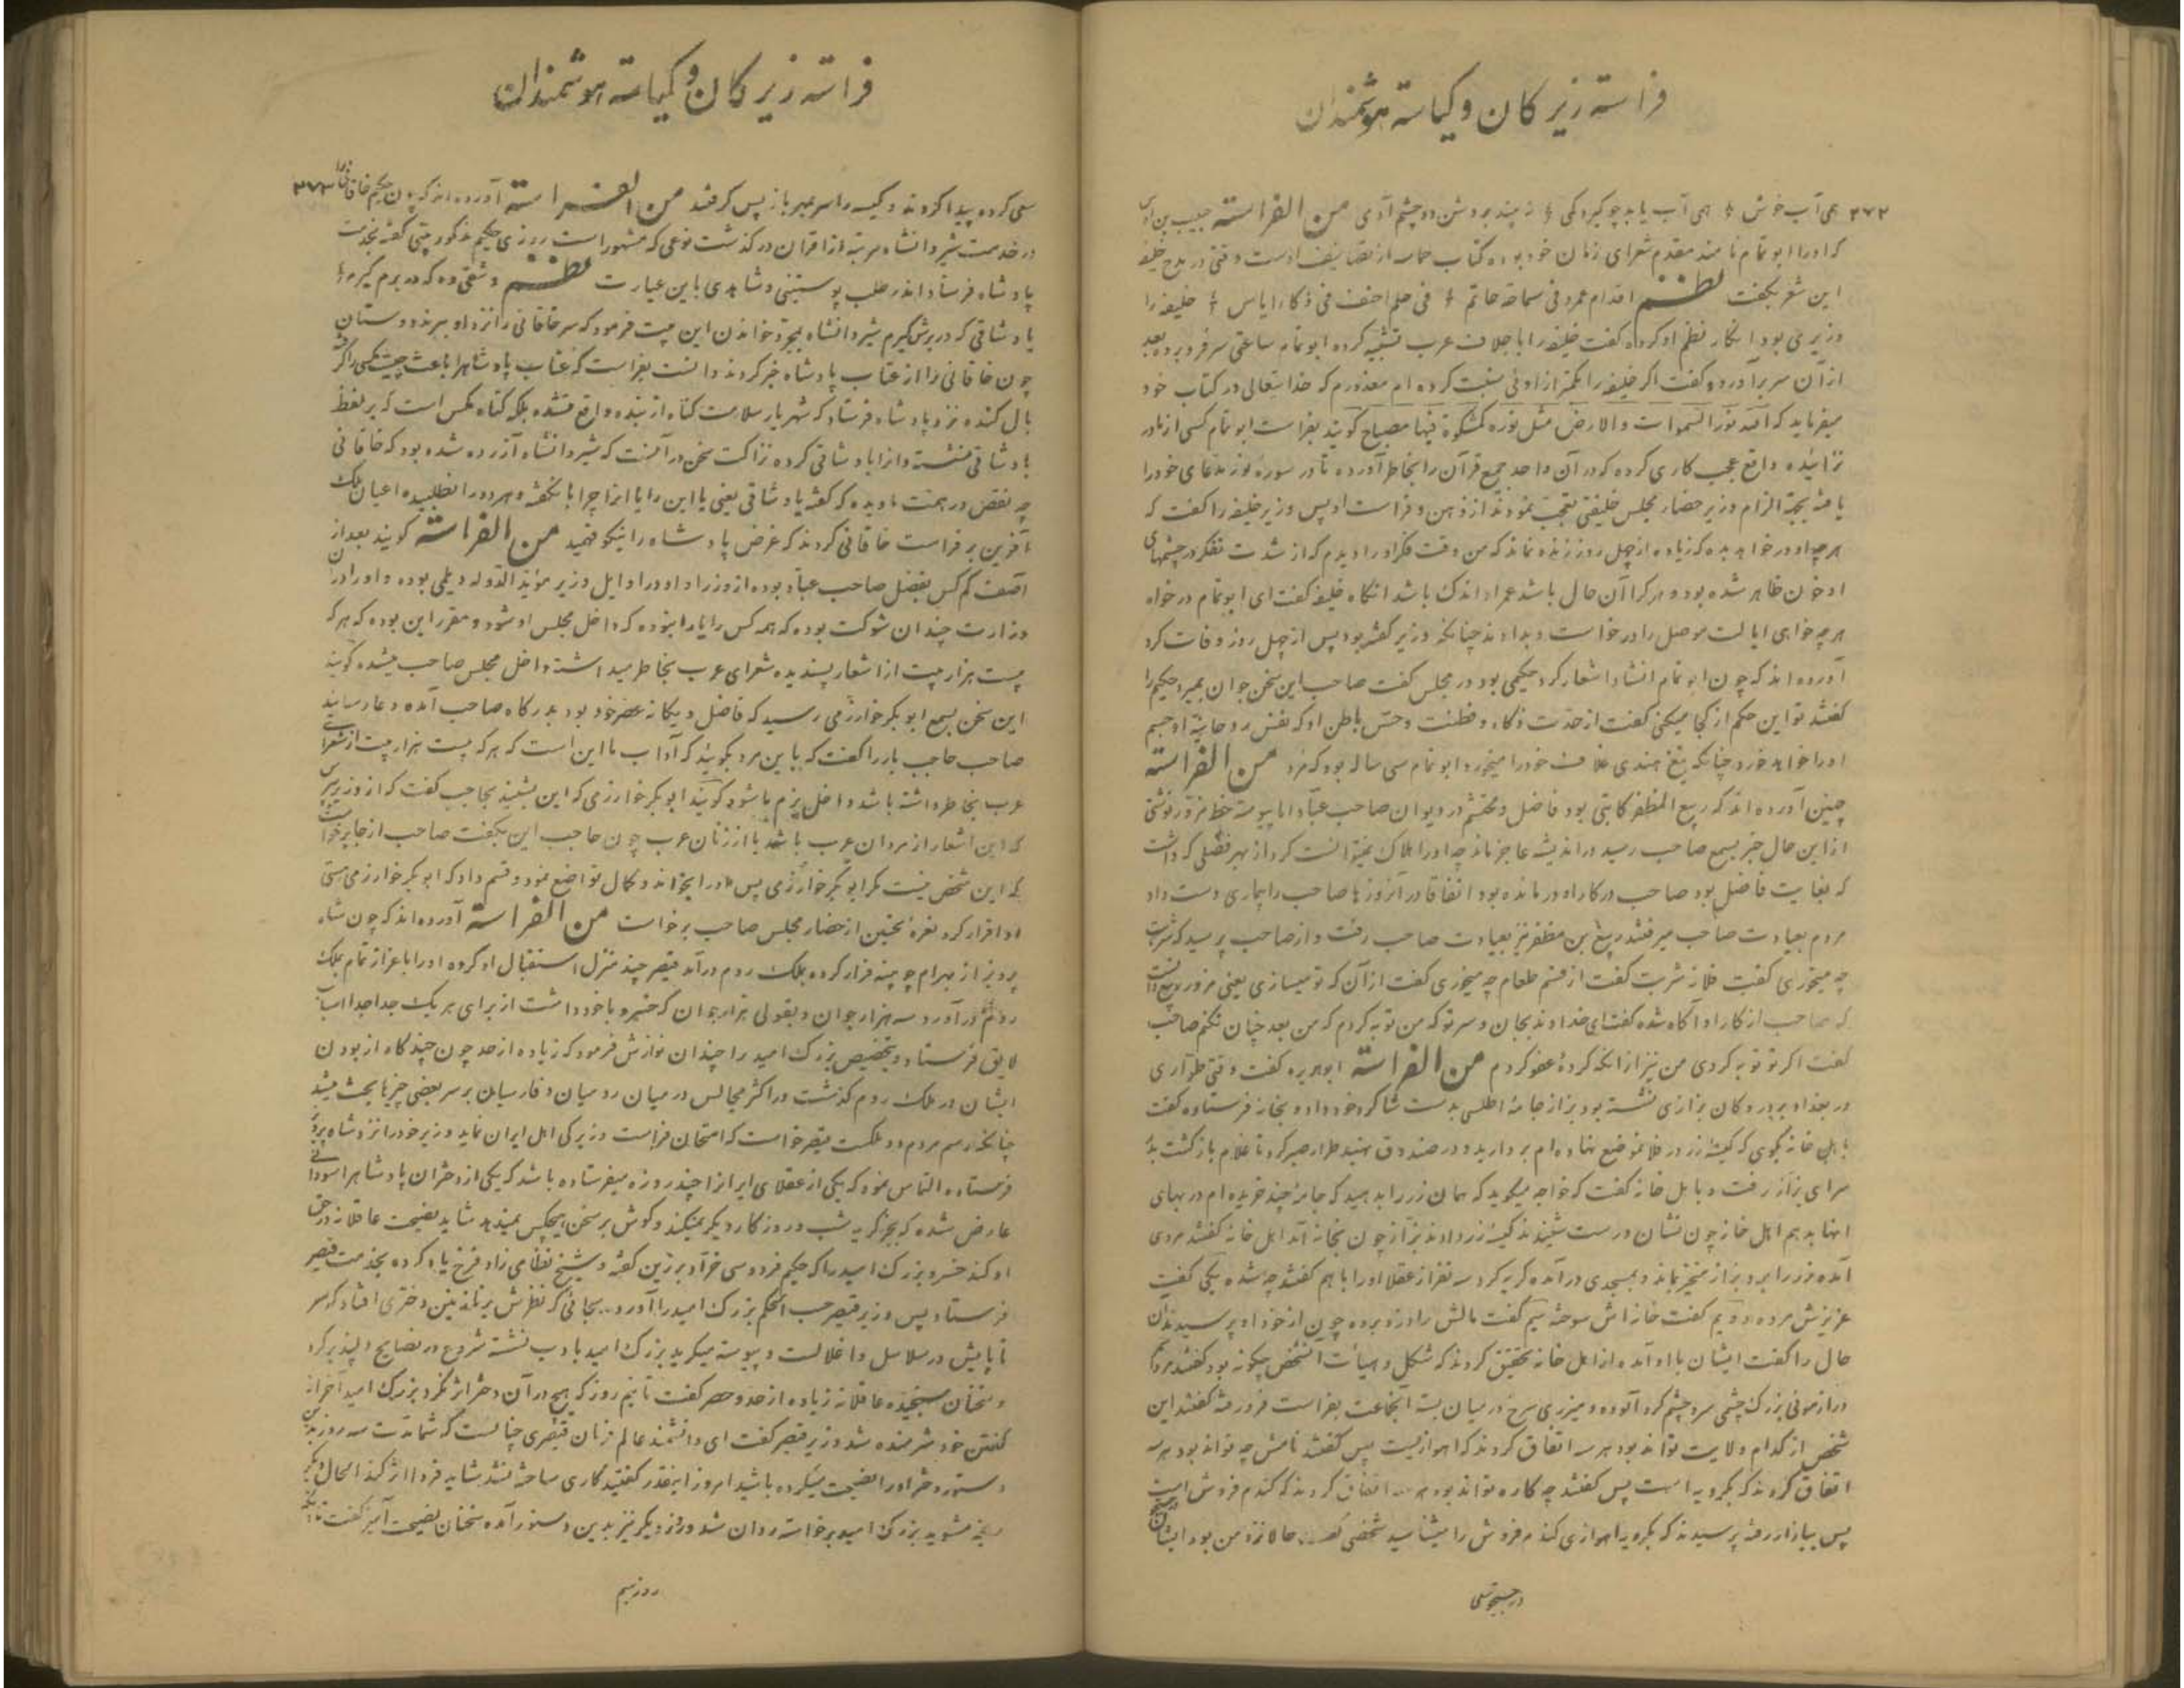 فراسته زیرکان و کیاسته هوشمندان
۳۷۲ همی آب خوش همی آب یابد چو گیرد کمی ز پند بردشن دو چشم آدمی من الفراسته حبیب بن اوس
که او را ابو تمام نامند مقدم شعرای زمان خود بوده کتاب حماسه از تصانیف اوست وقتی در مدح خلیفه
این شعر بگفت نظم اقدام عمرو فی سماحة حاتم فی حلم احنف فی ذکاء ایاس خلیفه را
وزیری بود انکار نظم او کرده گفت خلیفه را با اجلاف عرب تشبیه کرده ابو تمام ساعتی سر فرو برده بعد
از آن سر برآورد و گفت اگر خلیفه را بکمتر از اونی نسبت کرده ام معذورم که خدا یتعالی در کتاب خود
میفرماید که الله نور السموات والارض مثل نوره کمشکوة فیها مصباح گویند بفراست ابو تمام کسی از مادر
نزائیده واقع عجب کاری کرده که در آن واحد جمع قرآن را بخاطر آورده تا در سورهٔ نور مدعای خود را
یافته بجهة الزام وزیر حضار مجلس خلیفتی تعجب نمودند از ذهن و فراست او پس وزیر خلیفه را گفت که
هر چه او در خواهد بده که زیاده از چهل روز زنده نماند که من وقت فکر او را دیدم که از شدت تفکر در چشمهای
او خون ظاهر شده بود و هر کرا آن حال باشد عمر او اندک باشد انگاه خلیفه گفت ای ابو تمام در خواه
هر چه خواهی ایالت موصل را درخواست و بدادند چنانکه وزیر گفته بود پس از چهل روز وفات کرد
آورده اند که چون ابو تمام انشاد اشعار کرد حکیمی بود در مجلس گفت صاحب این سخن جوان بمیرد حکیم را
گفتند تو این حکم از کجا میکنی گفت از حدت ذکاء و فطنت و حس باطن او که نفس روحانیهٔ او جسم
او را خواهد خورد چنانکه تیغ هندی غلاف خود را میخورد ابو تمام سی ساله بود که مرد من الفراسته
چنین آورده اند که ربیع المظفر کاتبی بود فاضل و محتشم در دیوان صاحب عباد اما پیوسته خط مزور نوشتی
ازین حال خبر بسمع صاحب رسید در اندیشه عاجز ماند چه او را هلاک نمیتوانست کرد از بهر فضلی که داشت
که بغایت فاضل بود صاحب در کار او در مانده بود اتفاقا در آنروزها صاحب را بیماری دست داد
مردم بعیادت صاحب میرفتند ربیع بن مظفر نیز بعیادت صاحب رفت و از صاحب پرسید که شربت
چه میخوری گفت فلان شربت گفت از قسم طعام چه میخوری گفت از آن که تو میسازی یعنی مزور ربیع دانست
که صاحب از کار او آگاه شده گفت ای خداوند بجان و سر تو که من توبه کردم که من بعد چنان نکنم صاحب
گفت اگر تو توبه کردی من نیز از آنکه کردهٔ عفو کردم من الفراسته ابوهریره گفت وقتی طراری
در بغداد بر در دکان بزازی نشسته بود بزاز جامهٔ اطلسی بدست شاگرد خود داد و بخانه فرستاده گفت
با اهل خانه بگوی که کیسهٔ زر در فلان موضع نهاده ام بردارید و در صندوق نهید طرار صبر کرد تا غلام بازگشت بدر
سرای بزاز رفت و با اهل خانه گفت که خواجه میگوید که همان زر را بدهید که جامهٔ چند خریده ام در بهای
انها بدهم اهل خانه چون نشان درست شنیدند کیسهٔ زر دادند بزاز چون بخانه آمد اهل خانه گفتند مردی
آمده و زر را برد بزاز متحیر بماند و بمسجدی در آمده گریه کرد سه نفر از عقلا او را باهم گفتند چه شده یکی گفت
عزیزش مرده دویم گفت خانه اش سوخته سیم گفت مالش را دزد برده چون از خود او پرسیدند آن
حال را گفت ایشان با او آمده از اهل خانه تحقیق کردند که شکل و هیأت انشخص چگونه بود گفتند مردی
دراز موئی بزرگ چشمی سرو چشم گرد آلوده و میزری سرخ در میان بسته انجماعت بفراست فرو رفته گفتند این
شخص از کدام ولایت تواند بود هر سه اتفاق کردند که اهوازیست پس گفتند نامش چه تواند بود هر سه
اتفاق کردند که بکرویه است پس گفتند چه کاره تواند بود هر سه اتفاق کردند که گندم فروش است
پس ببازار رفته پرسیدند که بکرویه اهوازی گندم فروش را میشناسید شخصی گفت حالا نزد من بود ایشان
در جستجو
فراسته زیرکان و کیاسته هوشمندان
۳۷۳ سعی کرده پیدا کردند و کیسه را سر بمهر باز پس گرفتند من الفراسته آورده اند که چون حکیم خاقانی را
در خدمت شیروانشاه مرتبه از اقران در گذشت نوعی که مشهور است روزی حکیم مذکور بیتی گفته بخدمت
پادشاه فرستاد اندر طلب پوستینی و شاهدی باین عبارت نظم وشقی ده که در برم گیرم
یا وشاقی که در برش گیرم شیروانشاه بمجرد خواندن این بیت فرمود که سر خاقانی را نزد او ببرند دوستان
چون خاقانی را از عتاب پادشاه خبر کردند دانست بفراست که عتاب پادشاه را باعث چیست مگسی را گرفته
بال کنده نزد پادشاه فرستاد که شهریار سلامت گناه از بنده واقع نشده بلکه گناه مگس است که بر لفظ
با وشاقی نشسته و انرا یا وشاقی کرده نزاکت سخن در آنست که شیروانشاه آزرده شده بود که خاقانی
چه نقص در همت ما دیده که گفته یا وشاقی یعنی یا این را یا انرا چرا با نگفته و هر دو را نطلبیده اعیان ملک
آفرین بر فراست خاقانی کردند که غرض پادشاه را نیکو فهمید من الفراسته گویند بعد از
آصف کم کس بفضل صاحب عباد بوده از وزراء او در اوایل وزیر مؤید الدوله دیلمی بوده و او را در آن
وزارت چندان شوکت بوده که همه کس را یارا نبوده که داخل مجلس او شود و مقرر این بوده که هر که
بیست هزار بیت از اشعار پسندیده شعرای عرب بخاطر میداشته داخل مجلس صاحب میشده گویند
این سخن بسمع ابو بکر خوارزمی رسید که فاضل و یگانهٔ عصر خود بود بدرگاه صاحب آمده و عا رسانید
صاحب حاجب بار را گفت که باین مرد بگوئید که آداب ما این است که هر که بیست هزار بیت از شعرای
عرب بخاطر داشته باشد داخل بزم ما شود گویند ابو بکر خوارزمی که این بشنید بحاجب گفت که از وزیر بپرس
که این اشعار از مردان عرب باشد یا از زنان عرب چون حاجب این بگفت صاحب از جا برخواست
که این شخص نیست مگر ابو بکر خوارزمی پس او را بخواند و کمال تواضع نمود و قسم داد که ابو بکر خوارزمی هستی
او اقرار کرد نعرهٔ تحسین از حضار مجلس صاحب برخواست من الفراسته آورده اند که چون شاه
پرویز از بهرام چوبینه فرار کرده بملک روم در آمد قیصر چند منزل استقبال او کرده او را با عزاز تمام بملک
روم در آورد سه هزار جوان و بقولی هزار جوان که خسرو با خود داشت از برای هر یک جدا جدا اسباب
لایق فرستاد و بتخصیص بزرگ امید را چندان نوازش فرمود که زیاده از حد چون چندگاه از بودن
ایشان در ملک روم گذشت در اکثر مجالس در میان رومیان و فارسیان بر سر بعضی چیزها بحث میشد
چنانکه رسم مردم دو مملکت قیصر خواست که امتحان فراست و زیرکی اهل ایران نماید وزیر خود را نزد شاه پرویز
فرستاده التماس نمود که یکی از عقلای ایران را چند روزه میفرستاده باشد که یکی از دختران پادشاه را سودائی
عارض شده که بجز گریه شب و روز کار دیگر نمیکند و گوش بر سخن هیچکس نمیدهد شاید نصیحت عاقلانه در حق
او کند خسرو بزرگ امید را که حکیم فردوسی خراد برزین گفته و شیخ نظامی زاد فرخ یاد کرده بخدمت قیصر
فرستاد پس وزیر قیصر حسب الحکم بزرگ امید را آورد بجائی که نظرش بر نازنین دختری افتاد که سر
تا پایش در سلاسل و اغلالست و پیوسته میگرید بزرگ امید با ادب نشسته شروع در نصایح دلپذیر کرد
و سخنان سنجیده عاقلانه زیاده از حد و حصر گفت تا نیم روز که هیچ در آن دختر اثر نکرد بزرگ امید آخر از
گفتن خود شرمنده شد وزیر قیصر گفت ای دانشمند عالم فرمان قیصری چنانست که شما مدت سه روز بدین
دستور دختر او را نصیحت میکرده باشید امروز اینقدر گفتید کاری ساخته نشد شاید فردا اثر کند الحال دیگر
رنجه مشوید بزرگ امید برخواسته روان شد و روز دیگر نیز بدین دستور آمده سخنان نصیحت آمیز گفت
روز سیم